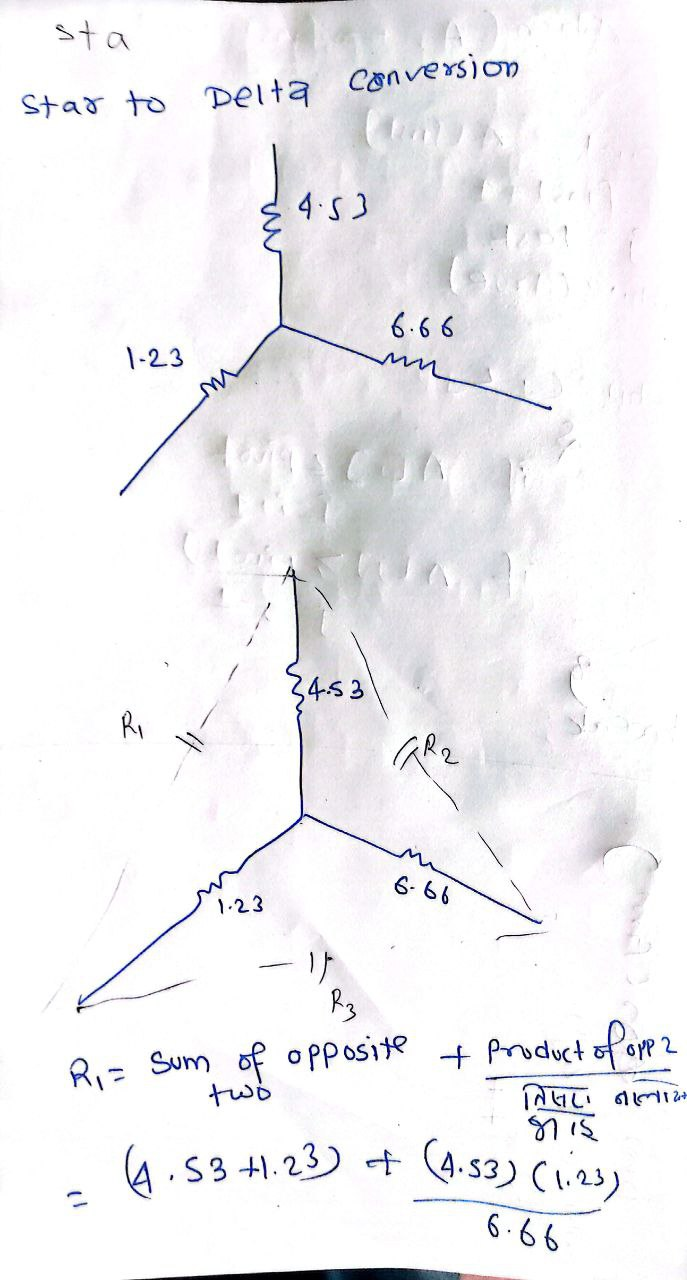 sta
Star to Delta Conversion
4.53
6.66
1.23
4.53
R1
R2
6.66
1.23
R3
R1 = Sum of opposite two + Product of opp 2
= (4.53 + 1.23) + (4.53) (1.23)
6.66